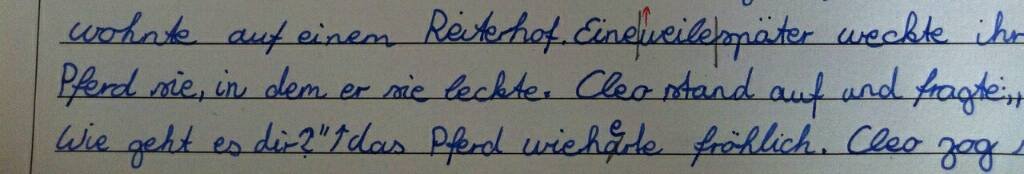 wohnte auf einem Reiterhof. Eine weile später weckte ihr
Pferd sie, in dem er sie leckte. Cleo stand auf und fragte: „
Wie geht es dir?" das Pferd wieherte fröhlich. Cleo zog